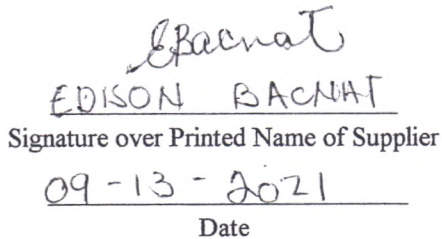 EBacnat
EDISON BACNAT
Signature over Printed Name of Supplier
09-13-2021
Date